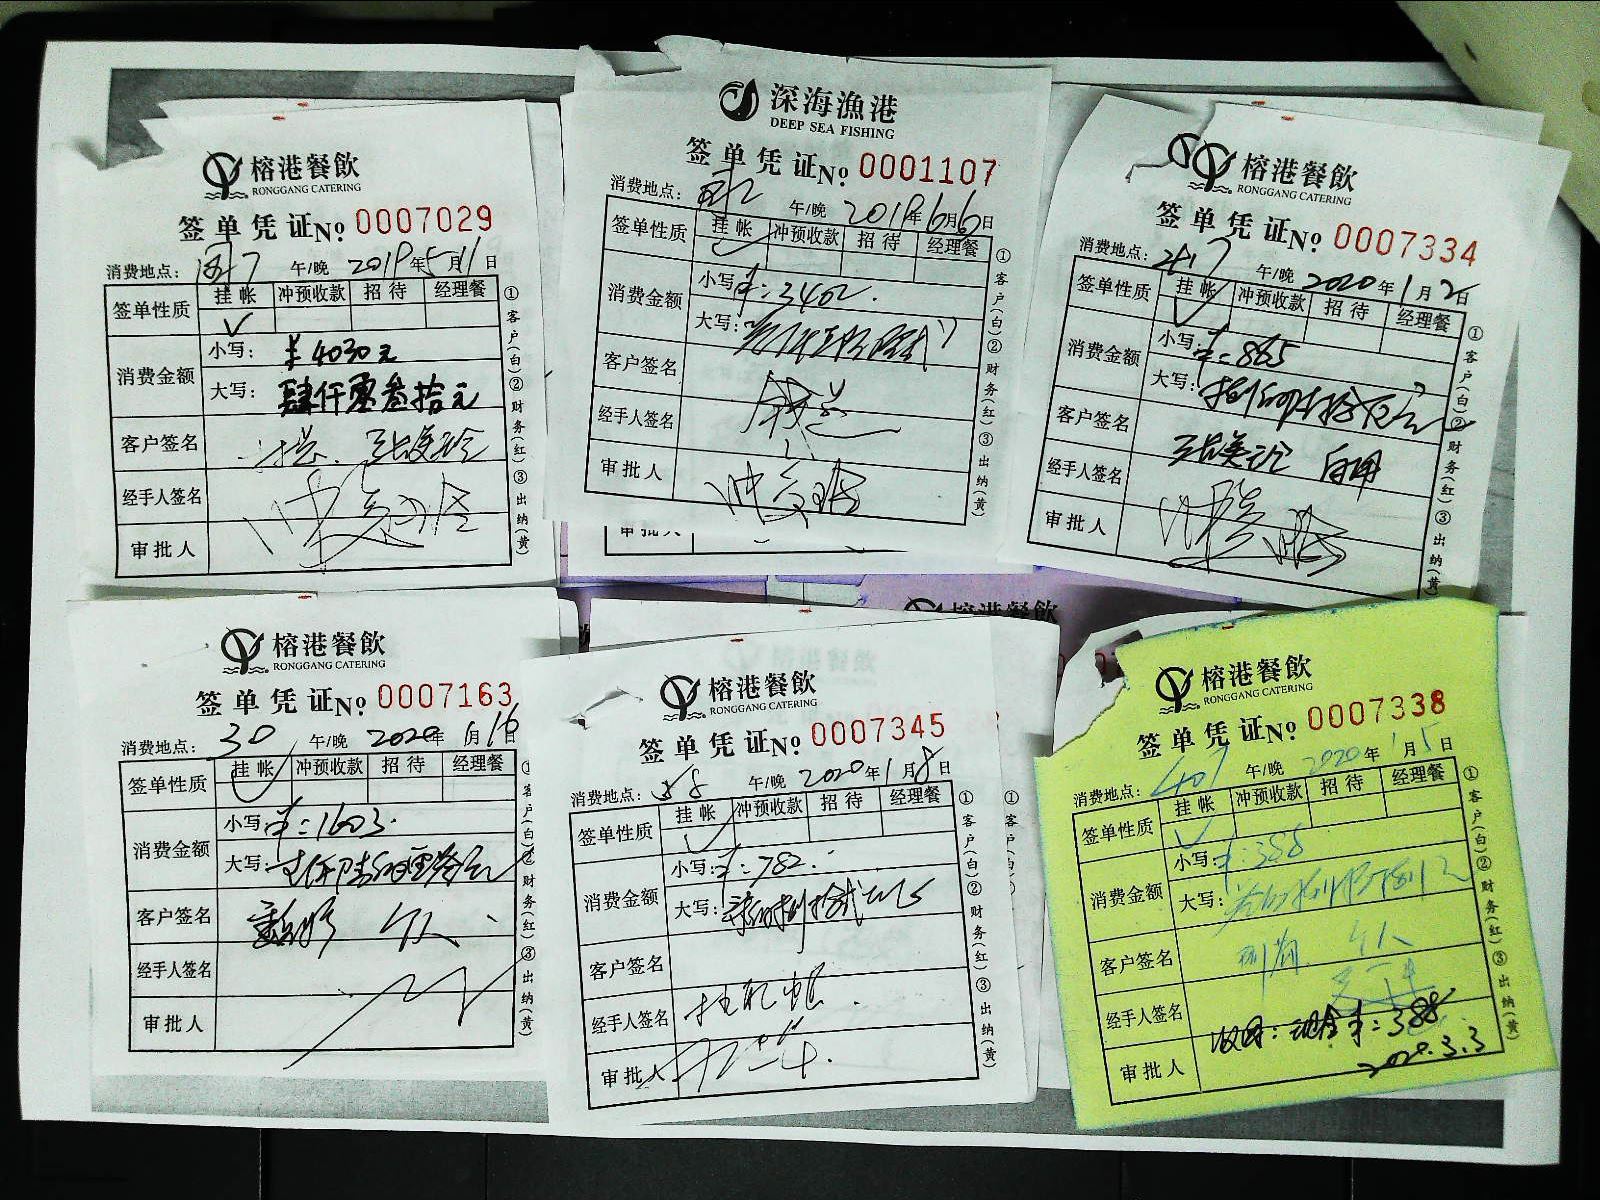 榕港餐飲
RONGGANG CATERING
签单凭证№ 0007029
消费地点: 午/晚 2019年5月11日
签单性质 挂帐 冲预收款 招待 经理餐
✓
消费金额 小写: ¥4030元
大写: 肆仟零叁拾元
客户签名
经手人签名
审批人
①客户(白)②财务(红)③出纳(黄)
深海漁港
DEEP SEA FISHING
签单凭证№ 0001107
消费地点: 午/晚 2019年6月6日
签单性质 挂帐 冲预收款 招待 经理餐
消费金额 小写: ¥:3402.
大写:
客户签名
经手人签名
审批人
①客户(白)②财务(红)③出纳(黄)
审批人
榕港餐飲
RONGGANG CATERING
签单凭证№ 0007334
消费地点: 午/晚 2020年1月2日
签单性质 挂帐 冲预收款 招待 经理餐
消费金额 小写: ¥:865
大写:
客户签名
经手人签名
审批人
①客户(白)②财务(红)③出纳(黄)
榕港餐飲
榕港餐飲
RONGGANG CATERING
签单凭证№ 0007163
消费地点: 30 午/晚 2020年1月16日
签单性质 挂帐 冲预收款 招待 经理餐
消费金额 小写: ¥:1603.
大写:
客户签名
经手人签名
审批人
①客户(白)②财务(红)③出纳(黄)
榕港餐飲
RONGGANG CATERING
签单凭证№ 0007345
消费地点: 午/晚 2020年1月8日
签单性质 挂帐 冲预收款 招待 经理餐
消费金额 小写: ¥:782.
大写:
客户签名
经手人签名
审批人
①客户(白)②财务(红)③出纳(黄)
①客户
榕港餐飲
RONGGANG CATERING
签单凭证№ 0007338
消费地点: 午/晚 2020年1月5日
签单性质 挂帐 冲预收款 招待 经理餐
消费金额 小写: ¥:388
大写:
客户签名
经手人签名
现金¥:388
审批人 2020.3.3
①客户(白)②财务(红)③出纳(黄)